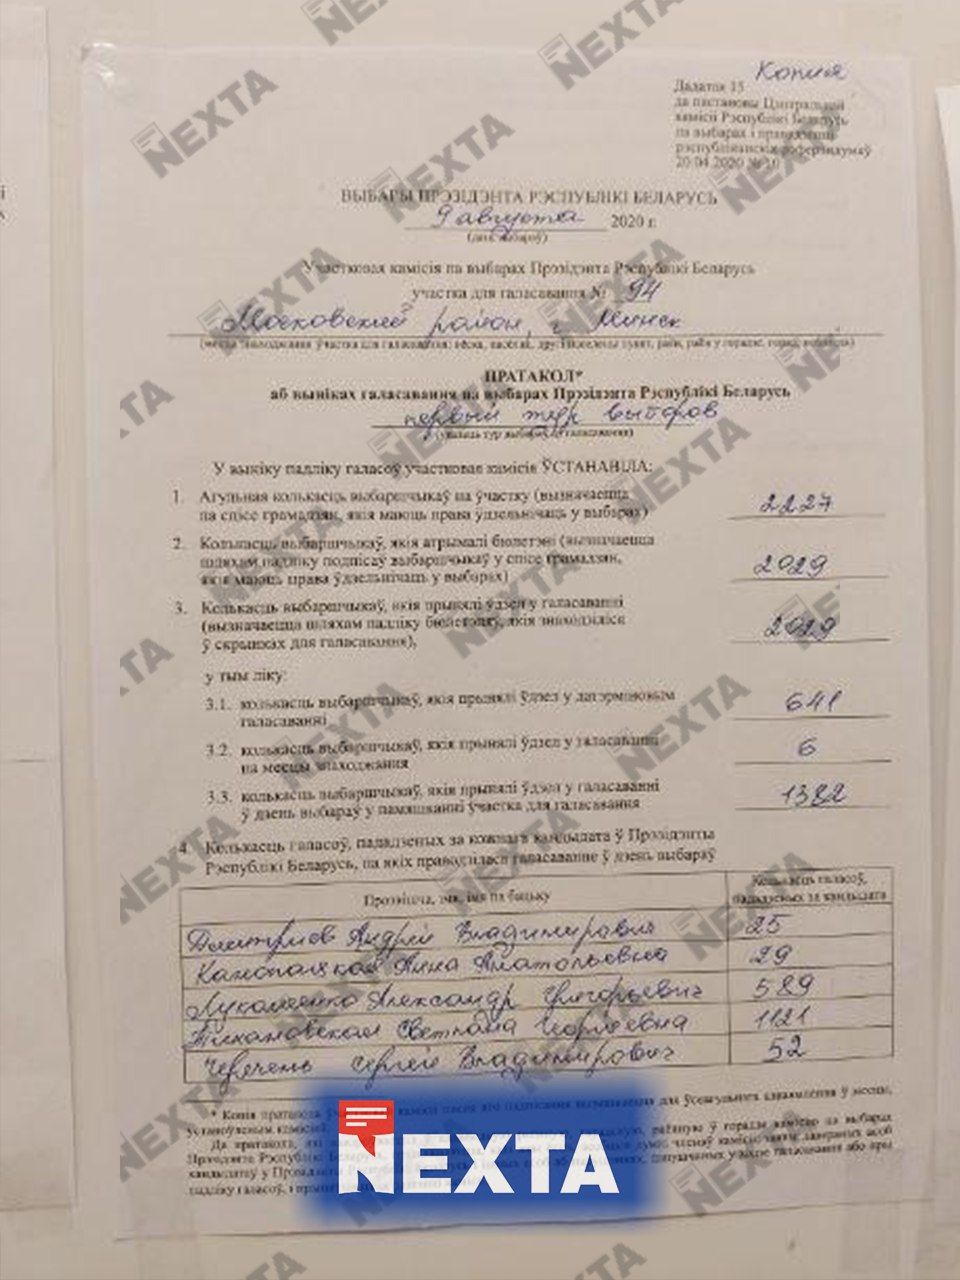 Копия
Дадатак 15
да пастановы Цэнтральнай
камісіі Рэспублікі Беларусь
па выбарах і правядзенні
рэспубліканскіх рэферэндумаў
20.04.2020 №
ВЫБАРЫ ПРЭЗІДЭНТА РЭСПУБЛІКІ БЕЛАРУСЬ
9 августа 2020 г.
(дата выбараў)
Участковая камісія па выбарах Прэзідэнта Рэспублікі Беларусь
участка для галасавання № 94
Московский район, г. Минск
(месца знаходжання ўчастка для галасавання:
ПРАТАКОЛ*
аб выніках галасавання на выбарах Прэзідэнта Рэспублікі Беларусь
первый тур выборов
У выніку падліку галасоў участковая камісія ЎСТАНАВІЛА:
1. Агульная колькасць выбаршчыкаў на ўчастку (вызначаецца
па спісе грамадзян, якія маюць права ўдзельнічаць у выбарах) 2227
2. Колькасць выбаршчыкаў, якія атрымалі бюлетэні (вызначаецца
шляхам падліку подпісаў выбаршчыкаў у спісе грамадзян,
якія маюць права ўдзельнічаць у выбарах) 2029
3. Колькасць выбаршчыкаў, якія прынялі ўдзел у галасаванні
(вызначаецца шляхам падліку бюлетэняў, якія знаходзіліся
ў скрынках для галасавання), 2029
у тым ліку:
3.1. колькасць выбаршчыкаў, якія прынялі ўдзел у датэрміновым
галасаванні 641
3.2. колькасць выбаршчыкаў, якія прынялі ўдзел у галасаванні
па месцы знаходжання 6
3.3. колькасць выбаршчыкаў, якія прынялі ўдзел у галасаванні
ў дзень выбараў у памяшканні ўчастка для галасавання 1382
4. Колькасць галасоў, пададзеных за кожнага кандыдата ў Прэзідэнты
Рэспублікі Беларусь, па якіх праводзілася галасаванне ў дзень выбараў
Прозвішча, імя, імя па бацьку
Колькасць галасоў,
пададзеных за кандыдата
Дмитриев Андрей Владимирович 25
Канопацкая Анна Анатольевна 29
Лукашенко Александр Григорьевич 589
Тихановская Светлана Георгиевна 1121
Черечень Сергей Владимирович 52
* Копія пратакола
для ўсеагульнага азнаямлення ў месцы,
устаноўленым камісіяй.
Да пратакола,
NEXTA